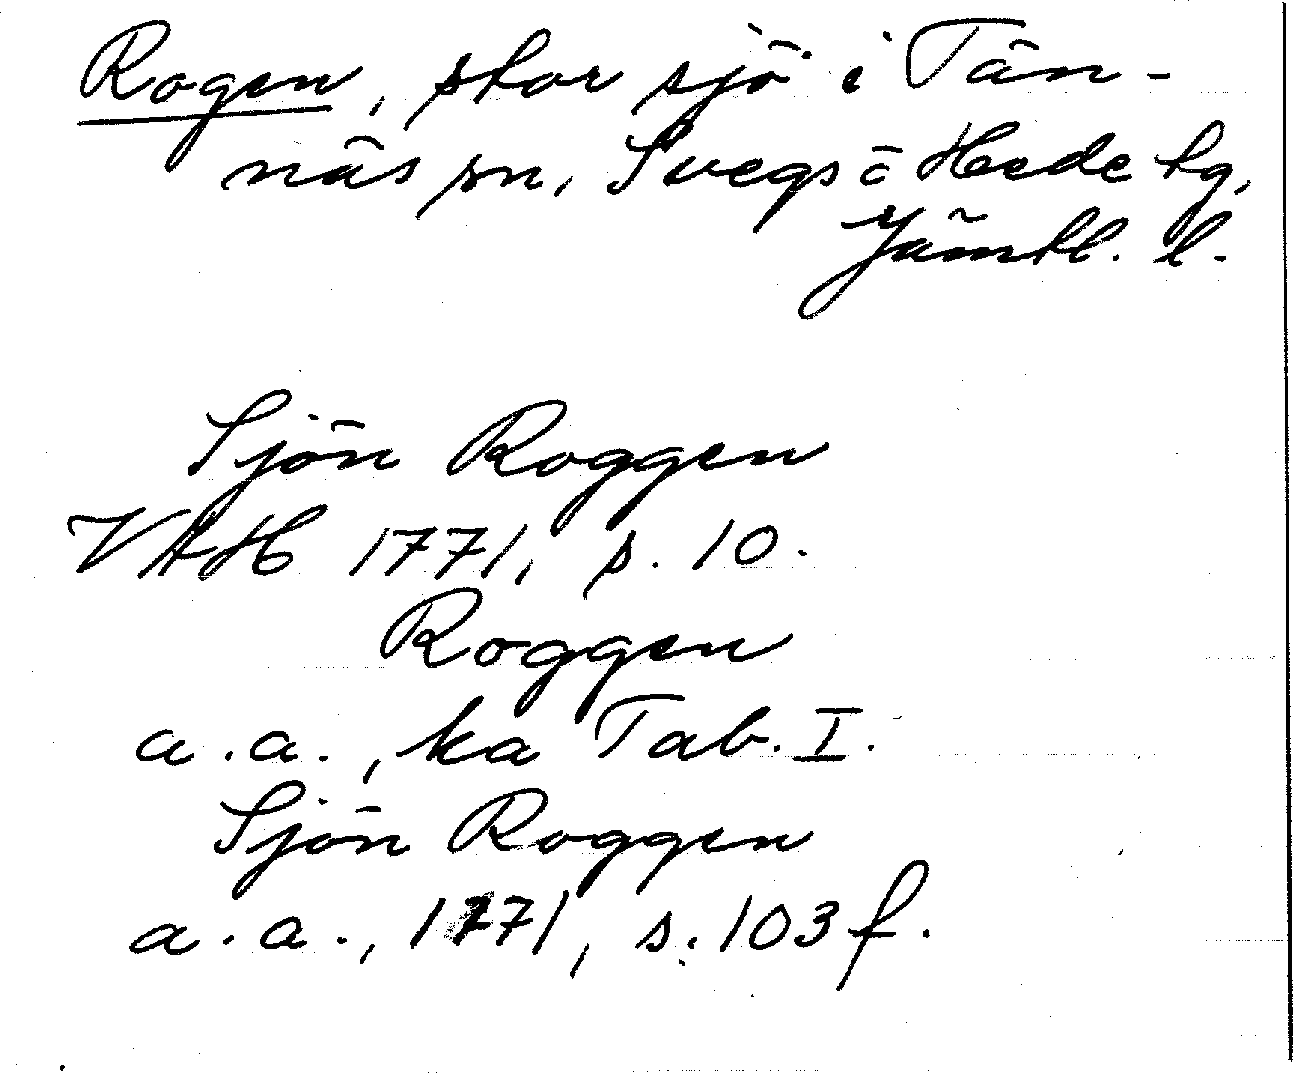 Rogen, stor sjö i Tän-
näs sn, Svegs o Hede tg,
Jämtl. l.
Sjön Roggen
VAH 1771, s. 10.
Roggen
a.a., ka Tab. I.
Sjön Roggen
a.a., 1771, s. 103 f.